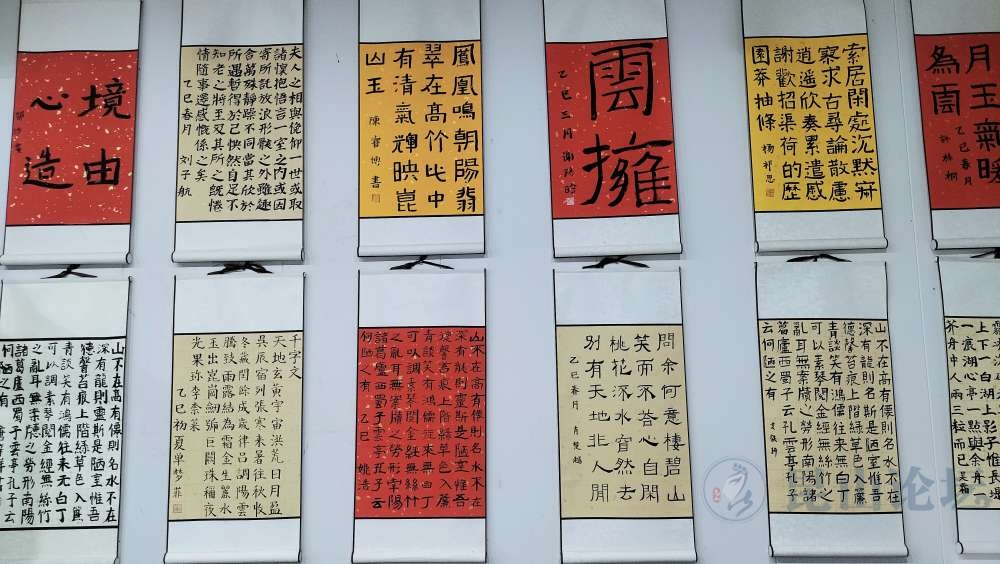 境由
心造
夫人之相與俯仰一世或取
諸懷抱悟言一室之内或因
寄所託放浪形骸之外雖趣
舍萬殊靜躁不同當其欣於
所遇暫得於己怏然自足不
知老之將至及其所之既惓
情隨事遷感慨係之矣
乙巳春月 刘子航
鳳凰鳴朝陽翡
翠在髙竹此中
有清氣輝映崑
山玉
陳睿博書
雲擁
乙巳三月
索居閑處沉默寂
寥求古尋論散慮
逍遥欣奏累遣感
謝歡招渠荷的歷
園莽抽條
月玉氣暖
乙巳春月
山不在高有僊則名水不在
深有龍則靈斯是陋室惟吾
德馨苔痕上階綠草色入簾
青談笑有鴻儒往来無白丁
可以調素琴閱金經無絲竹
之亂耳無案牘之勞形南陽
諸葛廬西蜀子雲亭孔子云
何陋之有
千字文
天地玄黃宇宙洪荒日月盈
昃辰宿列張寒来暑往秋收
冬藏閏餘成歲律吕調陽雲
騰致雨露結為霜金生麗水
玉出崑崗劍號巨闕珠稱夜
光果珍李柰菜
乙巳初夏單梦菲
山不在高有僊則名水不在
深有龍則靈斯是陋室惟吾
德馨苔痕上階綠草色入簾
青談笑有鴻儒往来無白丁
可以調素琴閱金經無絲竹
之亂耳無案牘之勞形南陽
諸葛廬西蜀子雲亭孔子云
何陋之有 乙巳 姚浩
問余何意棲碧山
笑而不答心自閑
桃花流水窅然去
別有天地非人間
乙巳春月 肖楚越
山不在高有僊則名水不在
深有龍則名斯是陋室惟吾
德馨苔痕上階綠草色入簾
青談笑有鴻儒往来無白丁
可以素琴閱金經無絲竹之
亂耳無案牘之勞形南陽諸
葛廬西蜀子云亭孔子
云何陋之有
一痕湖心亭一點與余舟
芥舟中人兩三粒而已
昆山论坛